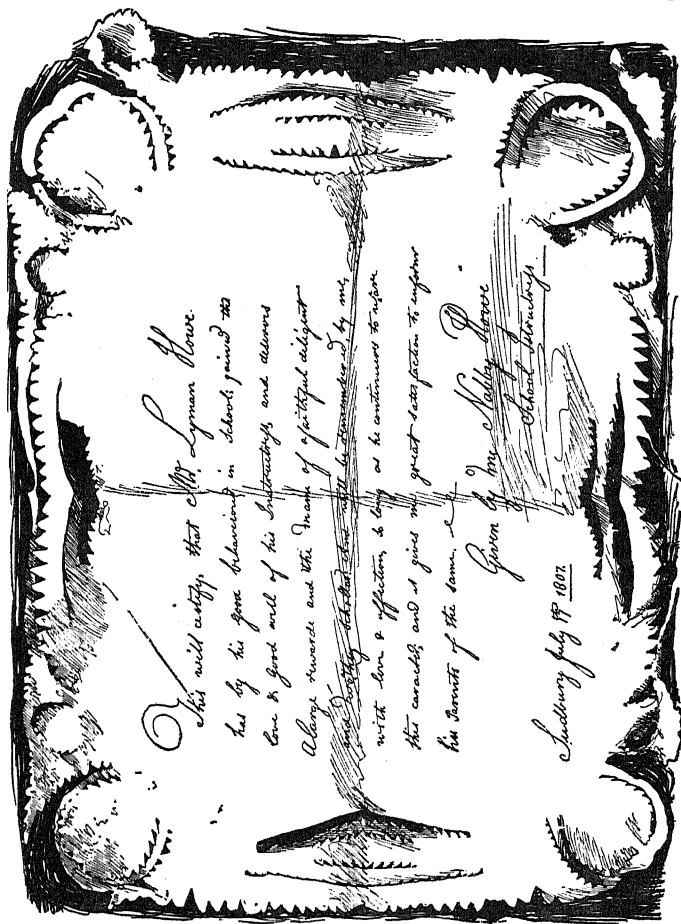 This will certify, that Mr. Lyman Howe.
has by his good behaviour in Schools gained the
love & good will of his Instructress and deserves
A large reward and the Name of a faithful diligent
and worthy scholar, and will be remembered by me,
with love & affection, so long as he continues to wear
this caracter, and it gives me great satisfaction to inform
his Parents of the same,
Given by me Nabby Howe
School Instructress
Sudbury July 1807.